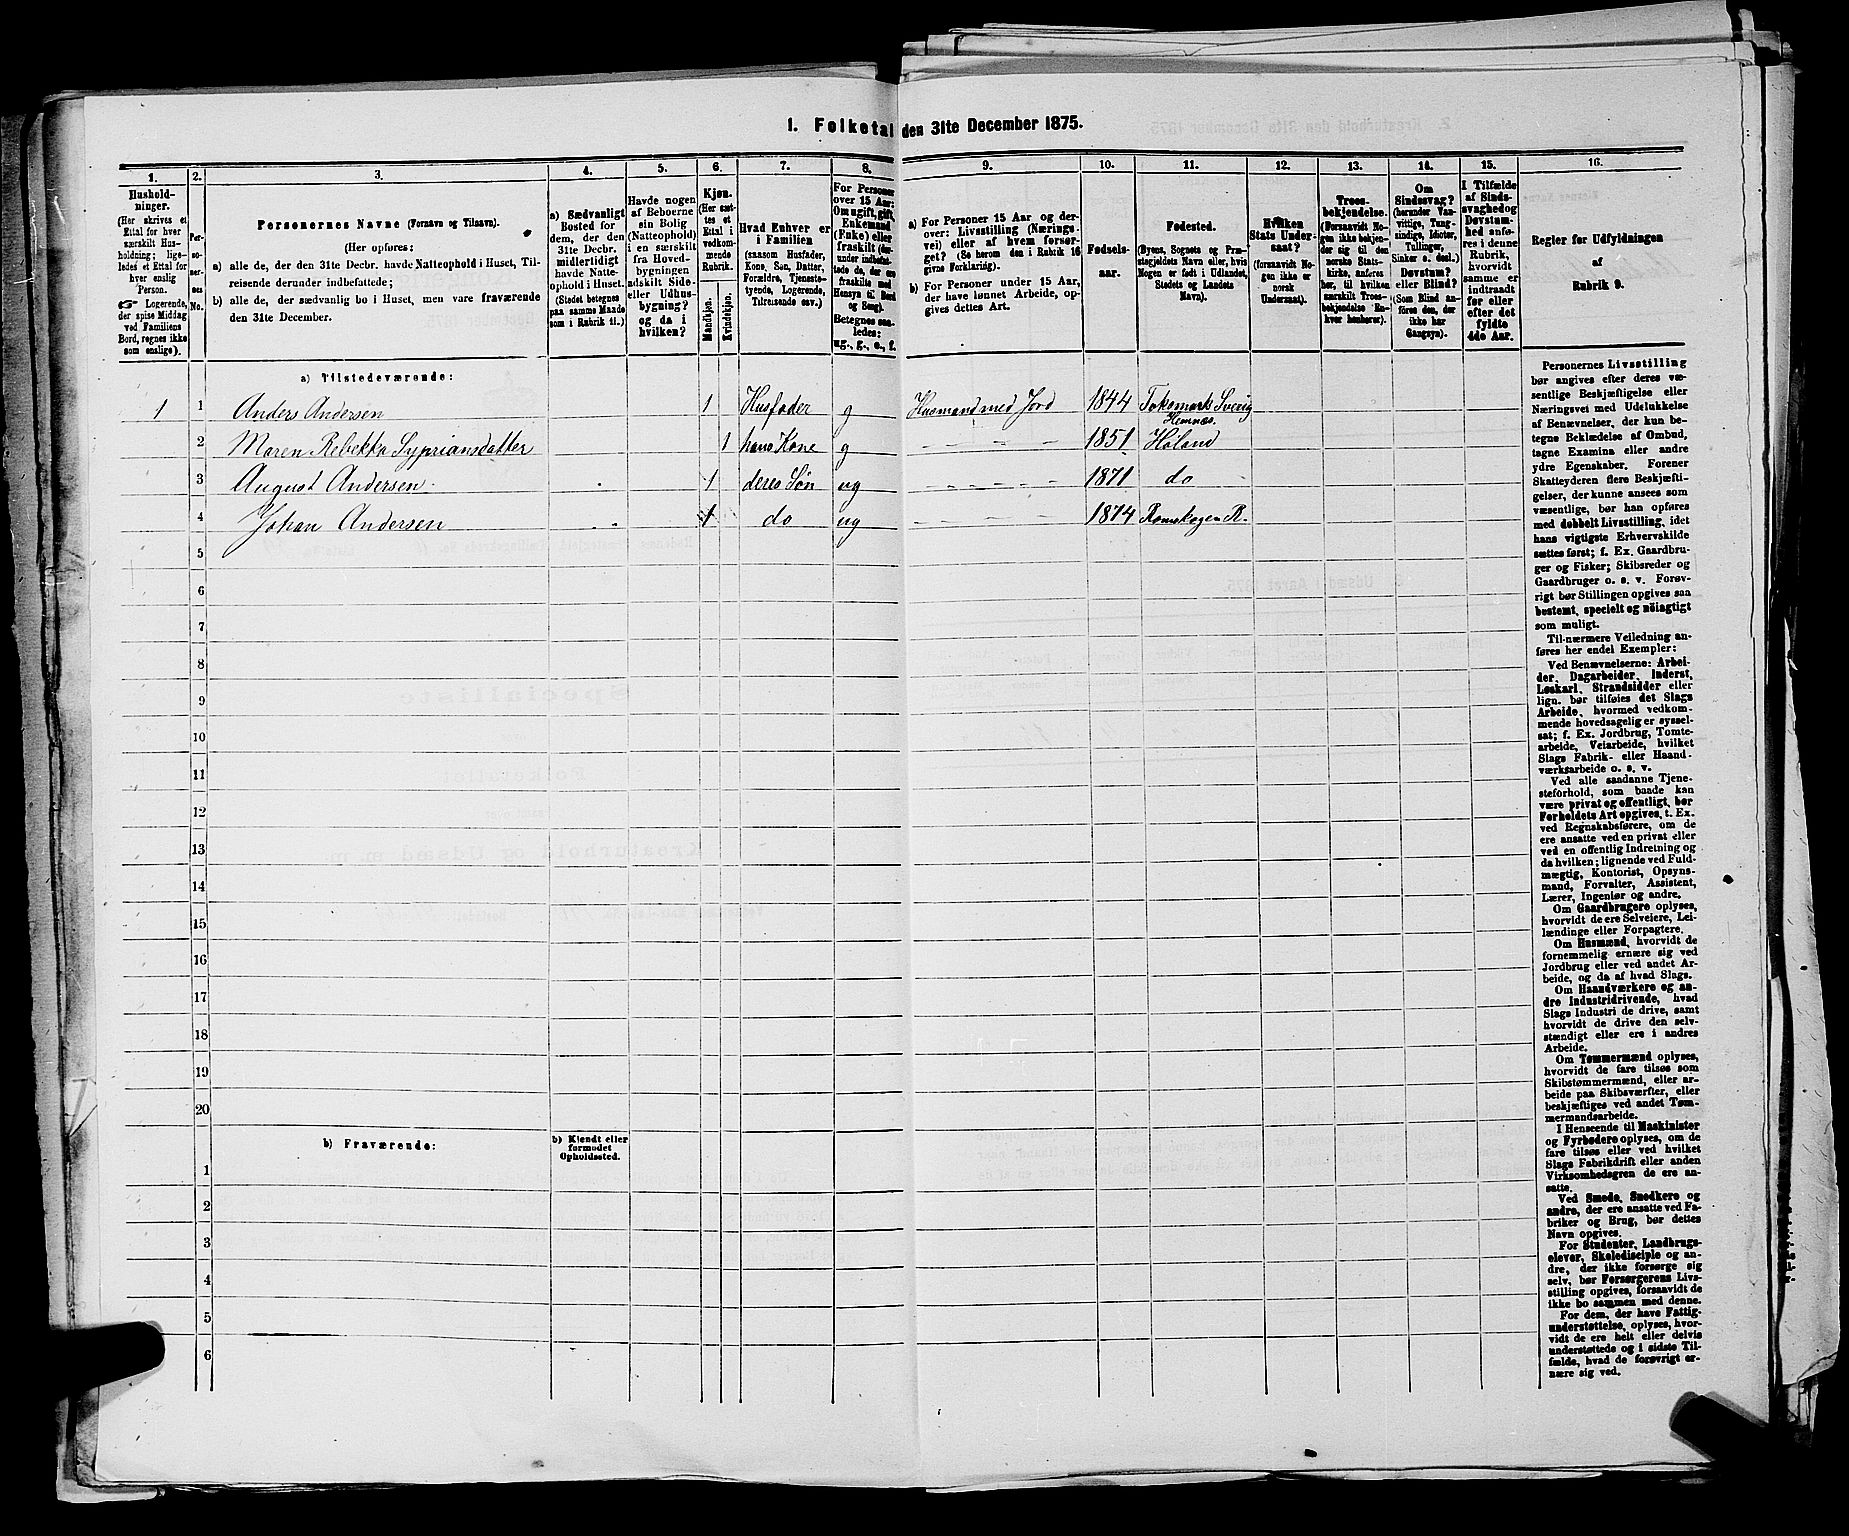 1. Folketal den 31te December 1875.
1.
2.
3.
4.
5.
6.
7.
8.
9.
10.
11.
12.
13.
14.
15.
16.
Husholdninger.
(Her skrives et
Ettal for hver
særskilt Husholdning; ligeledes et Ettal for
hver enslig
Person.
☞ Logerende,
der spise Middag
ved Familiens
Bord, regnes ikke
som enslige).
Personernes No.
Personernes Navne (Fornavn og Tilnavn).
(Her opføres;
a) alle de, der den 31te Decbr. havde Natteophold i Huset, Tilreisende derunder indbefattede;
b) alle de, der sædvanlig bo i Huset, men vare fraværende
den 31te December.
a) Sædvanligt
Bosted for
dem, der den
31te Decbr.
midlertidigt
havde Natteophold i Huset.
(Stedet betegnes
paa samme Maade
som i Rubrik 11.)
Havde nogen
af Beboerne
sin Bolig
(Natteophold)
i en særskilt
fra Hovedbygningen
adskilt Sideeller Udhusbygning?
og da i
hvilken?
Kjøn.
(Her sættes et
Ettal i
vedkommende
Rubrik.
Mandkjøn.
Kvindekjøn.
Hvad Enhver er
i Familien
(saasom Husfader,
Kone, Søn, Datter,
Forældre, Tjenestetyende, Logerende,
Tilreisende osv.)
For Personer
over 15 Aar;
Om ugift, gift,
Enkemand
(Enke) eller
fraskilt
Betegnes saaledes:
ug., g., e., f.
a) For Personer 15 Aar og derover: Livsstilling (Næringsvei) eller af hvem forsørget? (Se herom den i Rubrik 16
givne Forklaring).
b) For Personer under 15 Aar,
der have lønnet Arbeide, opgives dettes Art.
Fødselsaar.
Fødested.
(Byens, Sognets og Præstegjeldets Navn eller, hvis
Nogen er født i Udlandet,
Stedets og Landets
Navn).
Hvilken
Stats Undersaat?
(forsaavidt Nogen ikke er
norsk
Undersaat).
Troesbekjendelse.
(Forsaavidt Nogen ikke bekjender sig til den
norske Statskirke, anføres
her, til hvilken
særskilt Troesbekjendelse Enhver henhører).
Om
Sindssvag?
(herunder Vanvittige, Tungsindige, Idioter,
Tullinger,
Sinker o. desl.)
Døvstum?
eller Blind?
(Som Blind anføres den, der
ikke har
Gangsyn).
I Tilfælde
af Sindssvaghed og
Døvstumhed anføres i denne
Rubrik,
hvorvidt
samme er
indtraadt
før eller
efter det
fyldte
4de Aar.
Regler for Udfyldningen
af
Rubrik 9.
a) Tilstedeværende:
1 1 Anders Andersen 1 Husfader g Husmand med Jord 1844 Toksmark Sverig
2 Maren Rebekka Sypriansdatter 1 hans Kone g - - - - 1851 Hemnæs. Høland
3 August Andersen 1 deres Søn ug - - - - 1871 do
4 Johan Andersen 1 do ug - - - - 1874 Romskogen R.
5
6
7
8
9
10
11
12
13
14
15
16
17
18
19
20
b) Fraværende:
b) Kjendt eller
formodet
Opholdssted.
1
2
3
4
5
6
Personernes Livsstilling
bør angives efter deres væsentlige Beskjæftigelse eller
Næringsvei med Udelukkelse
af Benævnelser, der kun betegne Beklædelse af Ombud,
tagne Examina eller andre
ydre Egenskaber. Forener
Skatteyderen flere Beskjæftigelser, der kunne ansees som
væsentlige, bør han opføres
med dobbelt Livsstilling, idet
hans vigtigste Erhvervskilde
sættes først; f. Ex. Gaardbruger og Fisker; Skibsreder og
Gaardbruger o. s. v. Forøvrigt bør Stillingen opgives saa
bestemt, specielt og nøiagtigt
som muligt.
Til nærmere Veiledning anføres her endel Exempler:
Ved Benævnelserne: Arbeider, Dagarbeider, Inderst,
Løskarl, Strandsidder eller
lign. bør tilføies det Slags
Arbeide, hvormed vedkommende hovedsagelig er sysselsat; f. Ex. Jordbrug, Tomtearbeide, Veiarbeide, hvilket
Slags Fabrik- eller Haandværksarbeide o. s. v.
Ved alle saadanne Tjenesteforhold, som baade kan
være privat og offentligt, bør
Forholdets Art opgives, t. Ex.
ved Regnskabsførere, om de
ere ansatte ved en privat eller
ved en offentlig Indretning og
da hvilken; lignende ved Fuldmægtig, Kontorist, Opsynsmand, Forvalter, Assistent,
Lærer, Ingeniør og andre.
Om Gaardbrugere oplyses,
hvorvidt de ere Selveiere, Leilændinge eller Forpagtere.
Om Husmænd, hvorvidt de
fornemmelig ernære sig ved
Jordbrug eller ved andet Arbeide, og da af hvad Slags.
Om Haandværkere og andre Industridrivende, hvad
Slags Industri de drive, samt
hvorvidt de drive den selvstændigt eller ere i andres
Arbeide.
Om Tømmermænd oplyses,
hvorvidt de fare tilsøs som
Skibstømmermænd, eller arbeide paa Skibsværfter, eller
beskjæftiges ved andet Tømmermandsarbeide.
I Henseende til Maskinister
og Fyrbødere oplyses, om de
fare tilsøs eller ved hvilket
Slags Fabrikdrift eller anden
Virksomhedsgren de ere ansatte.
Ved Smede, Snedkere og
andre, der ere ansatte ved Fabriker og Brug, bør dettes
Navn opgives.
For Studenter, Landbrugselever, Skoledisciple og andre, der ikke forsørge sig
selv, bør Forsørgerens Livsstilling opgives, forsaavidt de
ikke bo sammen med denne.
For dem, der have Fattigunderstøttelse, oplyses, hvorvidt de ere helt eller delvis
understøttede og i sidste Tilfælde, hvad de forøvrigt ernære sig ved.